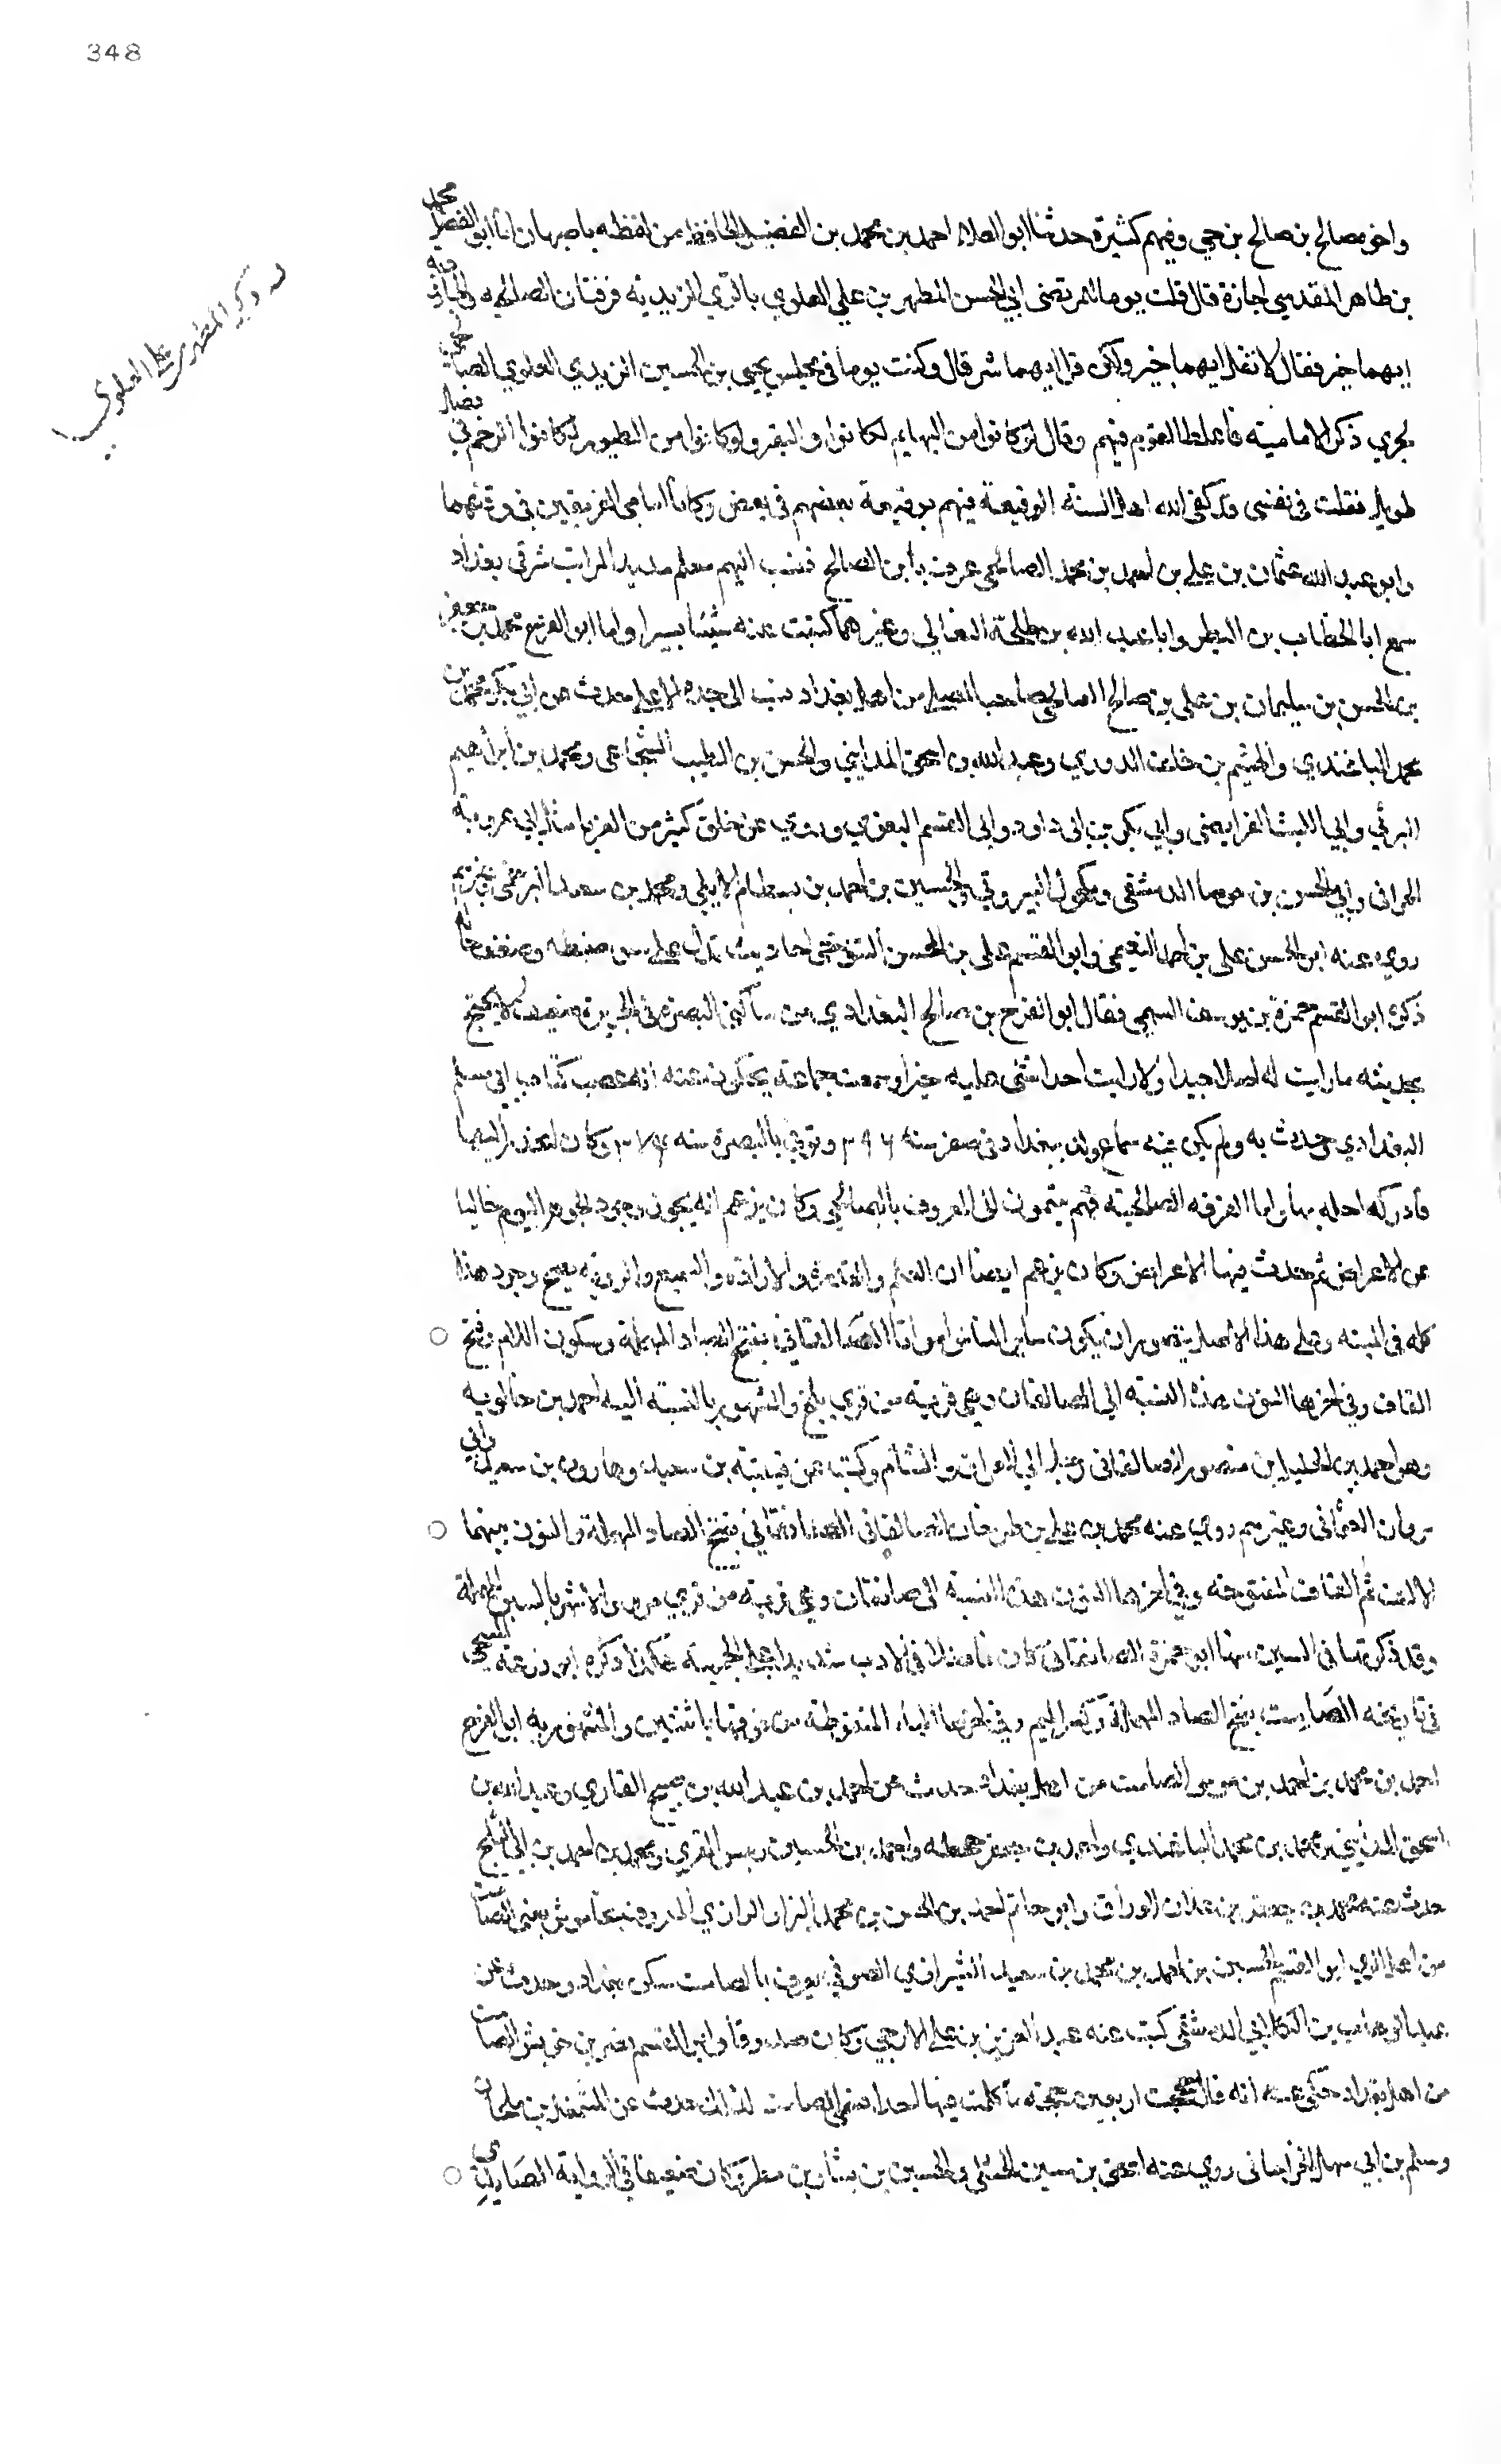 348
ذكر المطهر بن علي العلوي
واخو مصالح بن صالح بن حي وفيهم كثيرة حدثنا ابو العلاء احمد بن محمد بن الفضل الحافظ من لفظه باصبهان انا ابو الفضل محمد
بن طاهر المقدسي اجازة قال قلت يوما للمرتضى ابي الحسن المطهر بن علي العلوي بالري الزيدية فرقتان الصالحيه والجارودية
ايهما خير فقال لا تقل ايهما خير ولكن قل ايهما شر قال وكنت يوما في مجلس يحيى بن الحسين الزيدي العلوي الصالحي
فجرى ذكر الامامية فاغلظ القوم فيهم وقال لو كانوا من البهايم لكانوا البقر ولو كانوا من الطيور لكانوا الرخم في فصل
طويل فقلت في نفسي قد كفى الله اهل السنة الوقيعة فيهم بوقيعة بعضهم في بعض وكانا امامي الفريقين في وقتهما
وابو عبد الله عثمان بن علي بن احمد بن محمد الصالحي عرف بابن الصالح فنسب اليهم معلم شرقي بغداد
سمع ابا الخطاب بن البطر وابا عبد الله بن طلحة النعالي وغيرهما كتبت عنه شيئا يسيرا واما ابو الفرج محمد بن جعفر
بن الحسن بن سليمان بن علي بن صالح الصالحي صاحب المصلى من اهل بغداد نسب الى جده الاعلى حدث عن ابي بكر محمد بن
محمد الباغندي والهيثم بن خلف الدوري وعبد الله بن اسحق المدايني والحسن بن الطيب الشجاعي ومحمد بن ابراهيم
البرتي وابي الليث الفرايضي وابي بكر بن ابي داود وابي القسم البغوي وروى عن خلق كثير من الغربا مثل ابي عروبة
الحراني وابي الحسن بن جوصا الدمشقي ومكحول البيروتي والحسين بن احمد بن بسطام الابلي ومحمد بن سعيد
روى عنه ابو الحسن علي بن احمد النعيمي وابو القسم علي بن المحسن التنوخي احاديث تدل على سوء ضبطه وضعف حاله
ذكره ابو القسم حمزة بن يوسف السهمي فقال ابو الفرج بن صالح البغدادي من ساكني البصرة ضعيف لا يحتج
بحديثه ما رايت له اصلا جيدا ولا رايت احدا يثني عليه خيرا وسمعت جماعة يحكون عنه انه غصب كتاب ابي مسلم
البغدادي وحدث به ولم يكن فيه سماع ولد ببغداد في صفر سنة وتوفي بالبصرة سنه وكان انحدر اليها
فادركه اجله بها واما الفرقه الصالحية فهم ينتمون الى المعروف بالصالحي وكان يزعم انه يجوز وجود الجوهر اليوم خاليا
عن الاعراض ثم حدث فيها الاعراض وكان يزعم ايضا ان العلم والقدرة والارادة والسمع والرؤية يصح وجود هذا
كله في الميته وعلى هذا الاصل يتصور ان يكون ساير الناس امواتا الصالقاني بفتح الصاد المهملة وسكون اللام وفتح
القاف وفي اخرها النون هذه النسبة الى الصالقان وهي قرية من قرى بلخ والمشهور بالنسبة اليه احمد بن خالويه
وهو احمد بن الخليل بن منصور الصالقاني رحل الى العراق والشام وكتب عن قتيبة بن سعيد وهارون بن سعيد وابي
مروان العثماني وغيرهم روى عنه محمد بن علي بن طرخان الصالقاني الصانقاني بفتح الصاد المهملة والنون بينهما
الالف ثم القاف المفتوحه وفي اخرها النون هذه النسبة الى صانقان وهي قرية من قرى مرو والاشهر بالسين المهملة
وقد ذكرتها في السين منها ابو حمزة الصانقاني كان فاضلا في الادب شديدا على الجهمية هكذا ذكره ابو زرعة السنجي
في تاريخه الصامت بفتح الصاد المهملة وكسر الميم وفي اخرها التاء المنقوطة من فوقها باثنتين والمشهور به ابو الفرج
احمد بن محمد بن احمد بن موسى الصامت من اهل بغداد حدث عن احمد بن عبد الله بن القاري وعبد الله بن
اسحق المدايني ومحمد بن محمد الباغندي واحمد بن جعفر جحظه واحمد بن الحسين المقري ومحمد بن احمد بن ابي الثلج
حدث عنه محمد بن جعفر بن علان الوراق وابو حاتم احمد بن الحسن بن محمد البزاز الرازي المعروف بخاموش يعني الصامت
من اهل الري ابو القسم الحسين بن احمد بن محمد بن سعيد الشيرازي الصوفي يعرف بالصامت سكن بغداد وحدث عن
عبد الوهاب بن الكلابي الدمشقي كتب عنه عبد العزيز بن علي الازجي وكان صدوقا وابو القسم نصر بن حريش الصامت
من اهل بغداد حكي عنه انه قال حججت اربعين حجة ما كلمت فيها احدا فسمي الصامت لذلك حدث عن المشمعل بن ملحان
وسلم بن ابي سهل الخراساني روى عنه اسحق بن سنين الختلي والحسين بن بشار بن وكان ضعيفا في الرواية